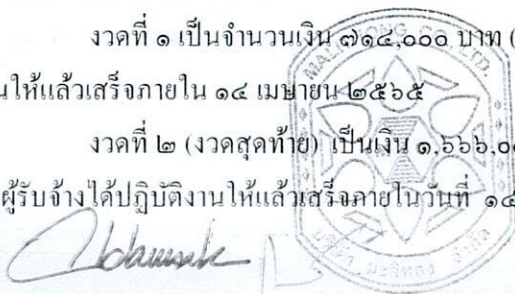 งวดที่ ๑ เป็นจำนวนเงิน ๗๑๔,๐๐๐ บาท (
นให้แล้วเสร็จภายใน ๑๔ เมษายน ๒๕๖๕
งวดที่ ๒ (งวดสุดท้าย) เป็นเงิน ๑,๖๖๖,๐
ผู้รับจ้างได้ปฏิบัติงานให้แล้วเสร็จภายในวันที่ ๑๔
CO., LTD.
บริษัท มะลิทอง จำกัด